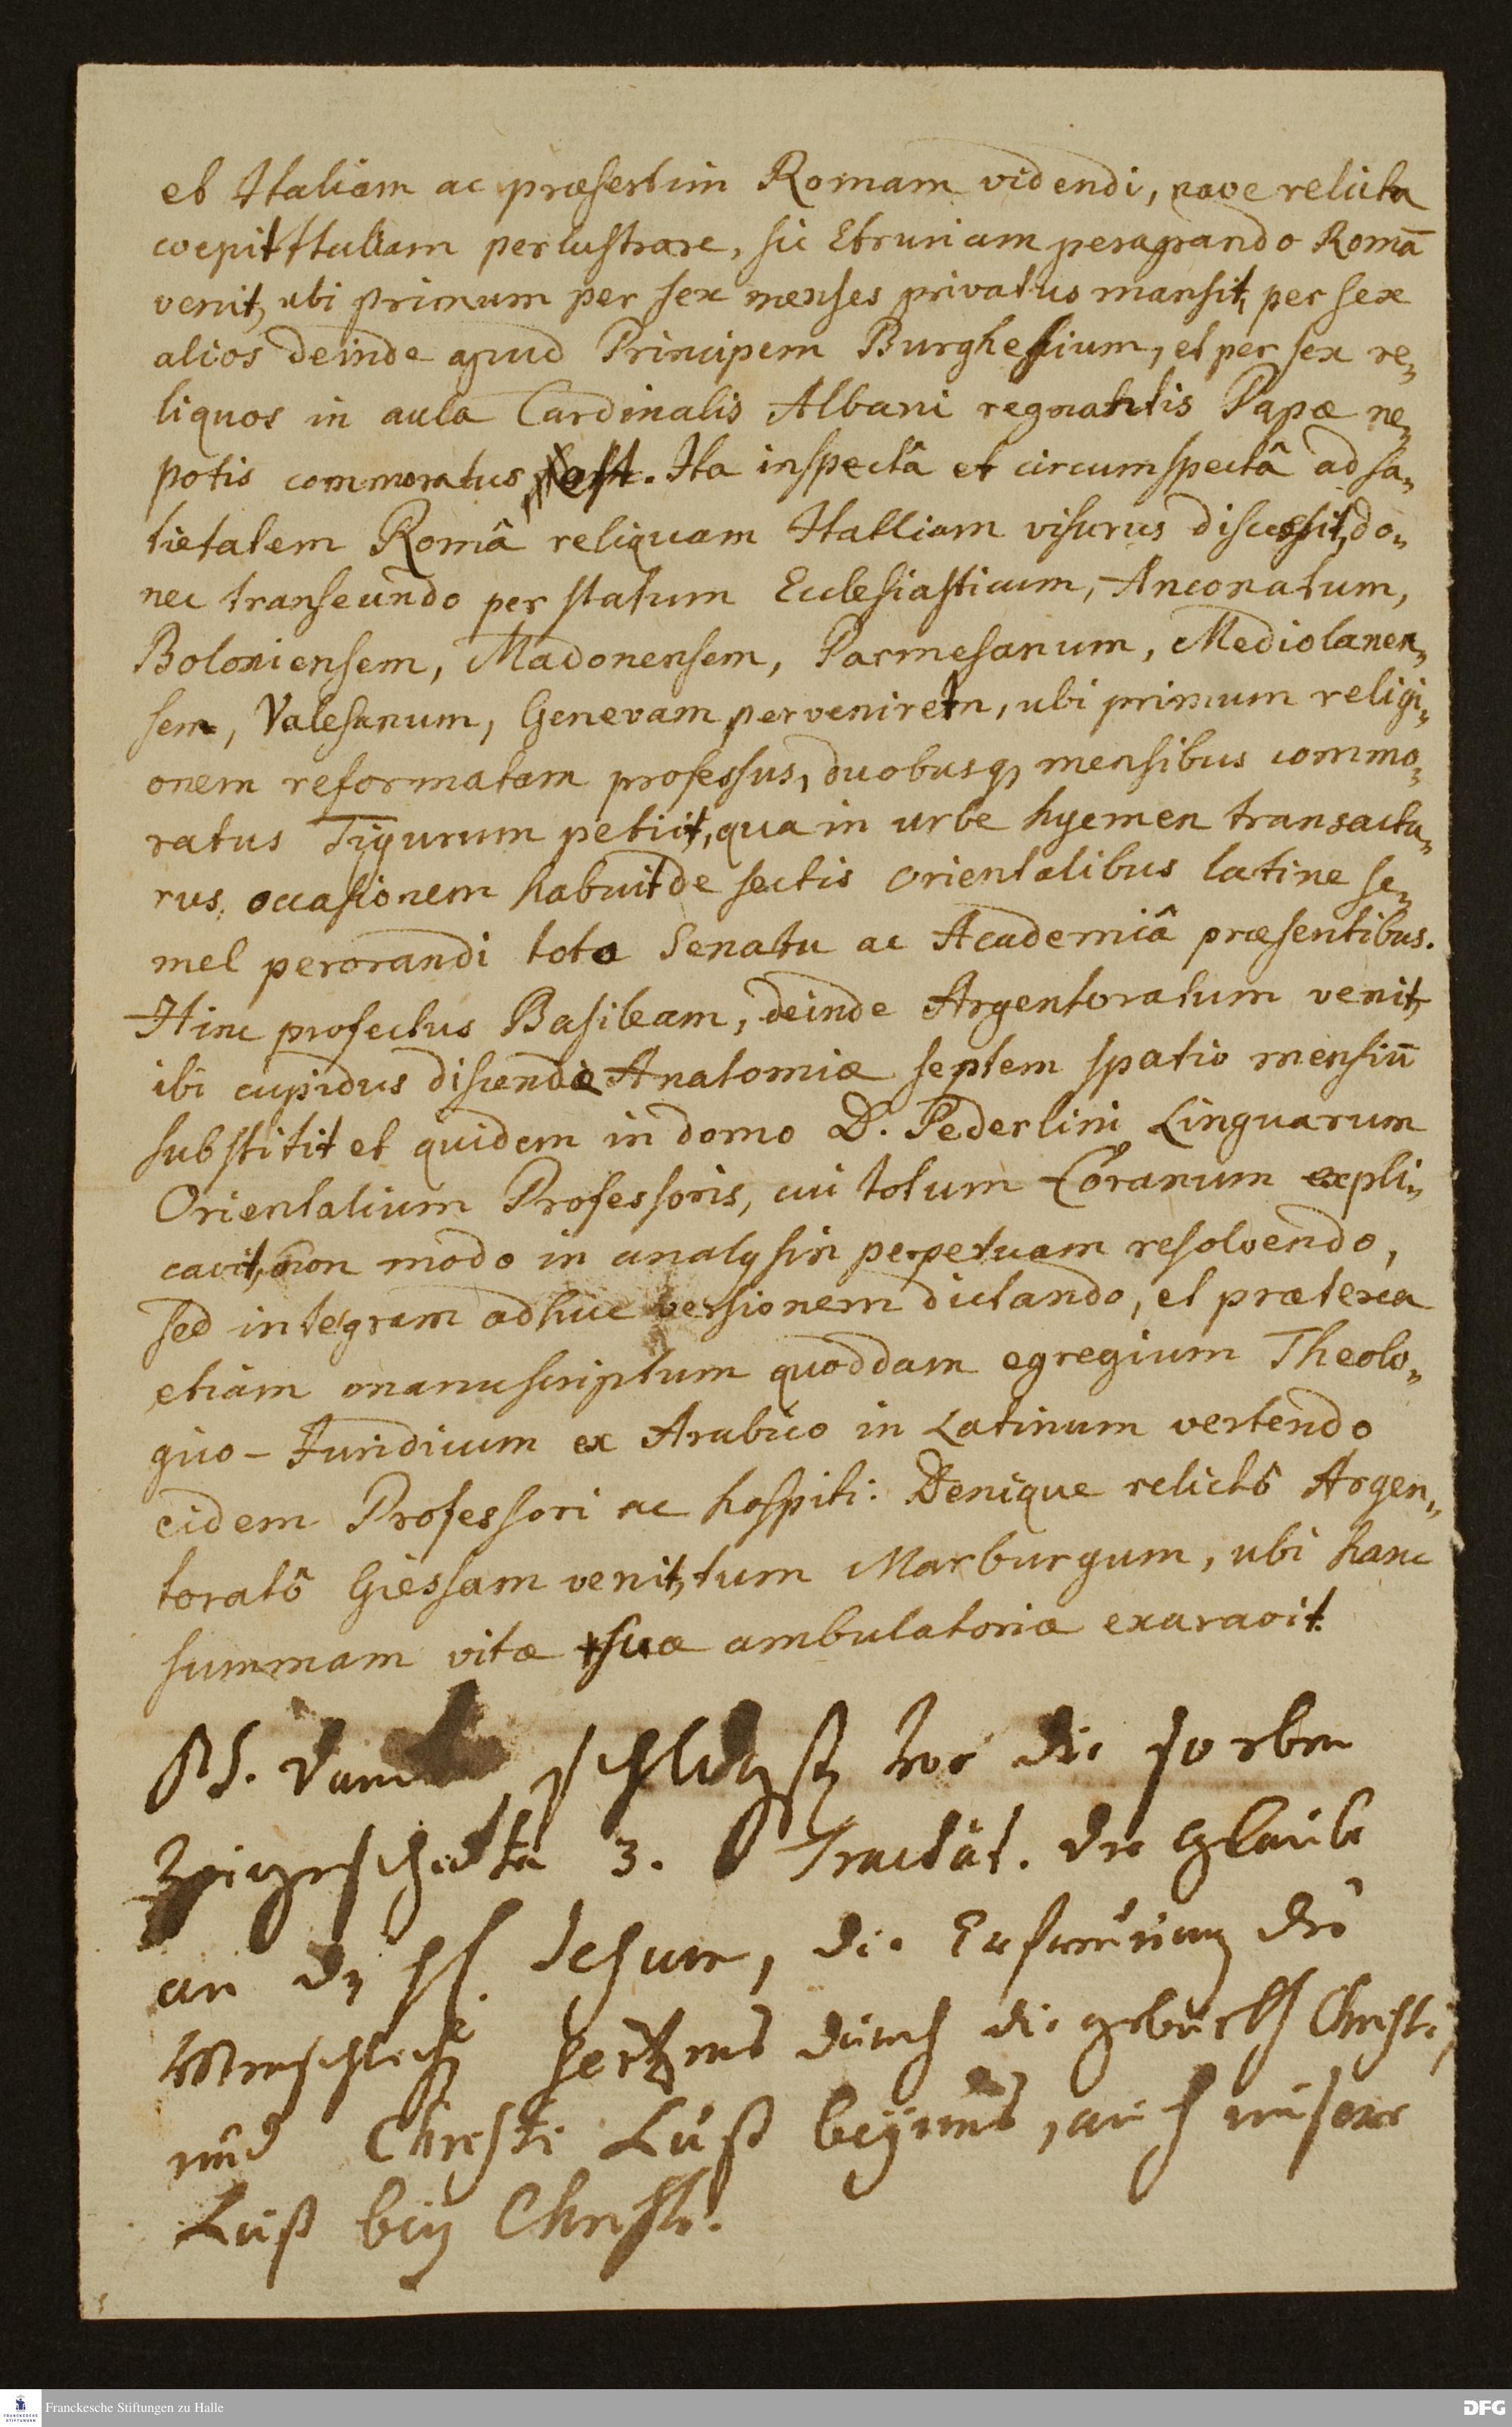 et Italiam ac præsertim Romam videndi, nave relicta
coepit Italiam perlustrare, sic Etruriam peragrando Romā
venit, ubi primum per sex menses privatus mansit, per sex
alios deinde apud Principem Burghesium, et per sex re„
liquos in aula Cardinalis Albani regnantis Papæ ne„
potis commoratus est. Ita inspectâ et circumspectâ ad sa„
tietatem Româ reliquam Italliam visurus discessit, do„
nec transeundo per statum Ecclesiasticum, Anconatum,
Boloniensem, Madonensem, Parmesanum, Mediolanen„
sem, Valesanum, Genevam perveniret, ubi primum religi„
onem reformatam professus, duobusq, mensibus commo„
ratus Tigurum petiit, qua in urbe hyemen transactu„
rus, occasionem habuit de sectis orientalibus latine se„
mel perorandi toto Senatu ac Academiâ præsentibus.
Hinc profectus Basileam, deinde Argentoratum venit,
ibi cupidus discendæ Anatomiæ septem spatio mensiū
substitit et quidem in domo D. Pederlini Linguarum
Orientalium Professoris, cui totum Coranum expli„
cavit, non modo in analysin perpetuam resolvendo,
sed integram adhuc versionem dictando, et præterea
etiam manuscriptum quoddam egregium Theolo„
gico-Juridicum ex Arabico in Latinum vertendo
eidem Professori ac hospiti: Denique relictô Argen„
toratô Giessam venit, tum Marburgum, ubi hanc
summam vitæ suæ ambulatoriæ exaravit.
PS. vor die so eben
3. Tractät. der Glaube
an den H. Jesum, die Erfreuung des
Menschlichen Hertzens durch die gebürth Christi,
und Christi Lust bey uns, auch unsere
Lust bey Christo.